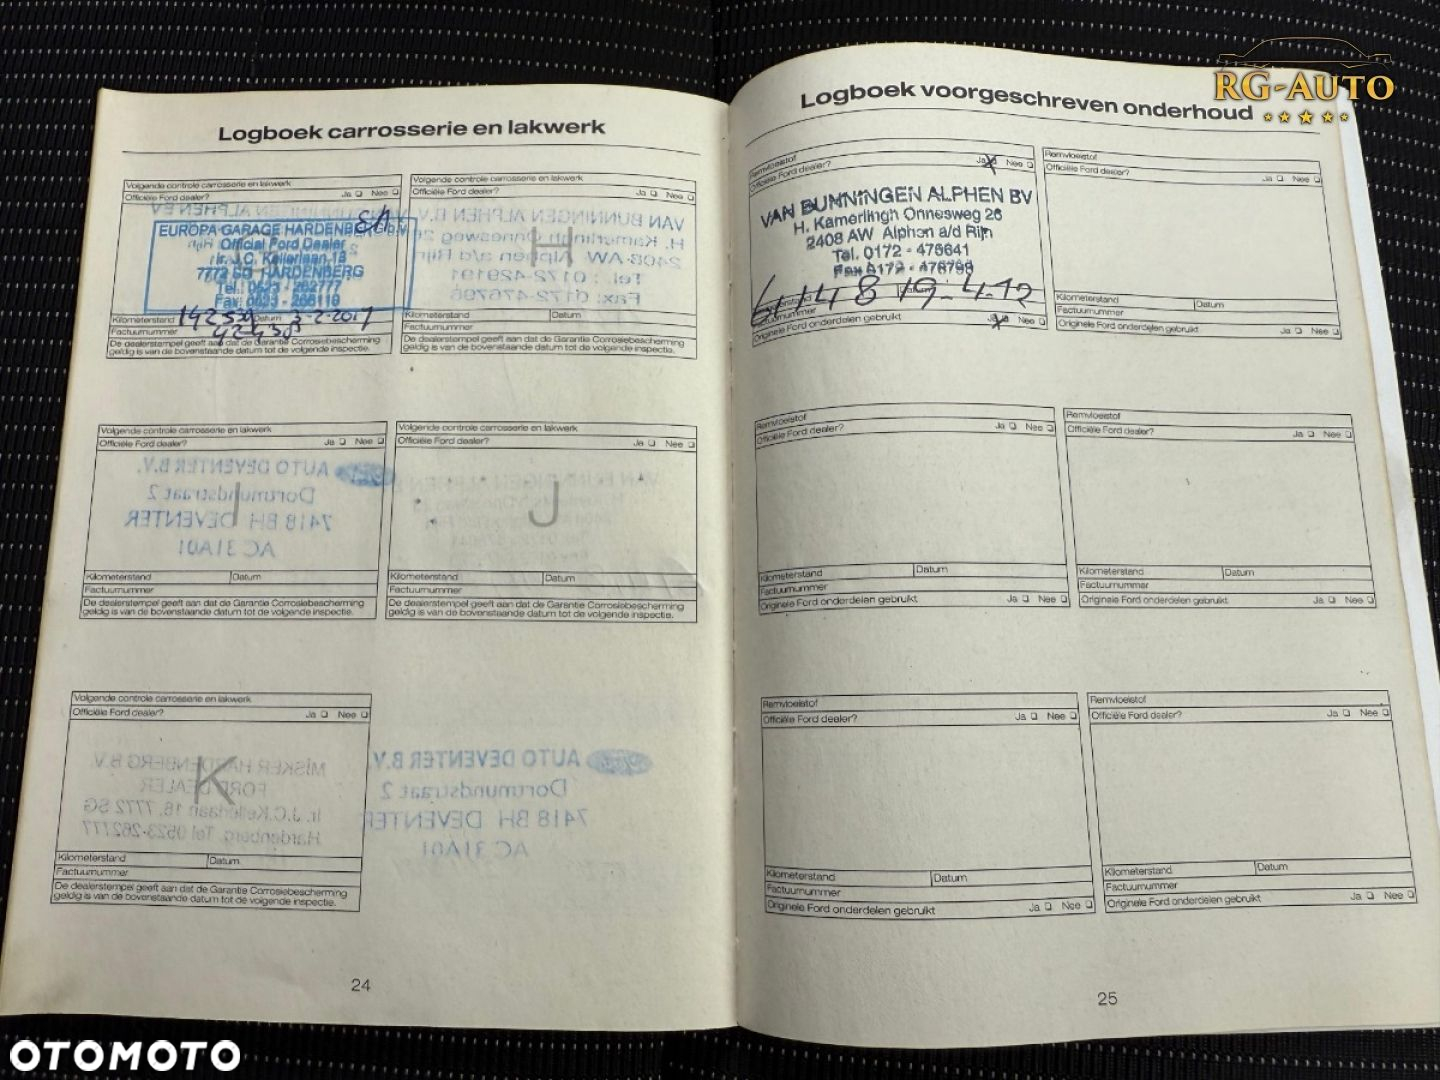 RG-AUTO
Logboek carrosserie en lakwerk
Volgende controle carrosserie en lakwerk
Officiële Ford dealer? Ja Nee
EUROPA GARAGE HARDENBERG B.V.
Official Ford Dealer
Ir. J.C. Kellerlaan 16
7772 SG HARDENBERG
Tel. 0523 - 262777
Kilometerstand Datum 3-2-2011
Factuurnummer
De dealerstempel geeft aan dat de Garantie Corrosiebescherming
geldig is van de bovenstaande datum tot de volgende inspectie.
Volgende controle carrosserie en lakwerk
Officiële Ford dealer? Ja Nee
H
Kilometerstand Datum
Factuurnummer
De dealerstempel geeft aan dat de Garantie Corrosiebescherming
geldig is van de bovenstaande datum tot de volgende inspectie.
Volgende controle carrosserie en lakwerk
Officiële Ford dealer? Ja Nee
I
Kilometerstand Datum
Factuurnummer
De dealerstempel geeft aan dat de Garantie Corrosiebescherming
geldig is van de bovenstaande datum tot de volgende inspectie.
Volgende controle carrosserie en lakwerk
Officiële Ford dealer? Ja Nee
J
Kilometerstand Datum
Factuurnummer
De dealerstempel geeft aan dat de Garantie Corrosiebescherming
geldig is van de bovenstaande datum tot de volgende inspectie.
Volgende controle carrosserie en lakwerk
Officiële Ford dealer? Ja Nee
K
Kilometerstand Datum
Factuurnummer
De dealerstempel geeft aan dat de Garantie Corrosiebescherming
geldig is van de bovenstaande datum tot de volgende inspectie.
24
Logboek voorgeschreven onderhoud
Remvloeistof
Officiële Ford dealer? Ja Nee
VAN BUNNINGEN ALPHEN BV
H. Kamerlingh Onnesweg 26
2408 AW Alphen a/d Rijn
Tel. 0172 - 476641
Fax 0172 - 476796
19-4-12
Originele Ford onderdelen gebruikt Ja Nee
Remvloeistof
Officiële Ford dealer? Ja Nee
Kilometerstand Datum
Factuurnummer
Originele Ford onderdelen gebruikt Ja Nee
Remvloeistof
Officiële Ford dealer? Ja Nee
Kilometerstand Datum
Factuurnummer
Originele Ford onderdelen gebruikt Ja Nee
Remvloeistof
Officiële Ford dealer? Ja Nee
Kilometerstand Datum
Factuurnummer
Originele Ford onderdelen gebruikt Ja Nee
Remvloeistof
Officiële Ford dealer? Ja Nee
Kilometerstand Datum
Factuurnummer
Originele Ford onderdelen gebruikt Ja Nee
Remvloeistof
Officiële Ford dealer? Ja Nee
Kilometerstand Datum
Factuurnummer
Originele Ford onderdelen gebruikt Ja Nee
25
OTOMOTO